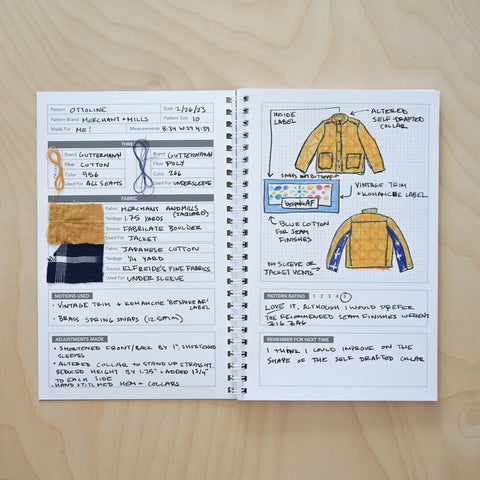 Pattern OTTOLINE Date 2/26/23
Pattern Brand MERCHANT + MILLS Pattern Size 10
Made For ME! Measurements B:34 W:29 H:39
THREAD
Brand GUTTERMANN Brand GUTTERMANN
Fiber COTTON Fiber POLY
Color 956 Color 266
Used For ALL SEAMS Used For UNDERSLEEVE
FABRIC
Fabric MERCHANT AND MILLS (JAQUARD)
Yardage 1.75 YARDS
Source FABRICATE BOULDER
Used For JACKET
Fabric JAPANESE COTTON
Yardage 1/4 YARD
Source ELFRIEDE'S FINE FABRICS
Used For UNDER SLEEVE
NOTIONS USED
• VINTAGE TRIM + KOHANCHE 'BESPOKE AF' LABEL
• BRASS SPRING SNAPS (12.5mm)
ADJUSTMENTS MADE
• SHORTENED FRONT/BACK BY 1", SHORTENED
SLEEVES
• ALTERED COLLAR TO STAND UP STRAIGHT.
REDUCED HEIGHT BY 1.25" + ADDED 1 3/4"
TO EACH SIDE
• HAND STITCHED HEM + COLLARS
INSIDE
LABEL
ALTERED
SELF-DRAFTED
COLLAR
SNAPS
bespokeAF
VINTAGE TRIM
+ KOHANCHE LABEL
BLUE COTTON
FOR SEAM
FINISHES
NO SLEEVE OR
JACKET VENTS
PATTERN RATING 1 2 3 4 5
LOVE IT, ALTHOUGH I WOULD PREFER
THE RECOMMENDED SEAM FINISHES WEREN'T
ZIG ZAG
REMEMBER FOR NEXT TIME
I THINK I COULD IMPROVE ON THE
SHAPE OF THE SELF DRAFTED COLLAR